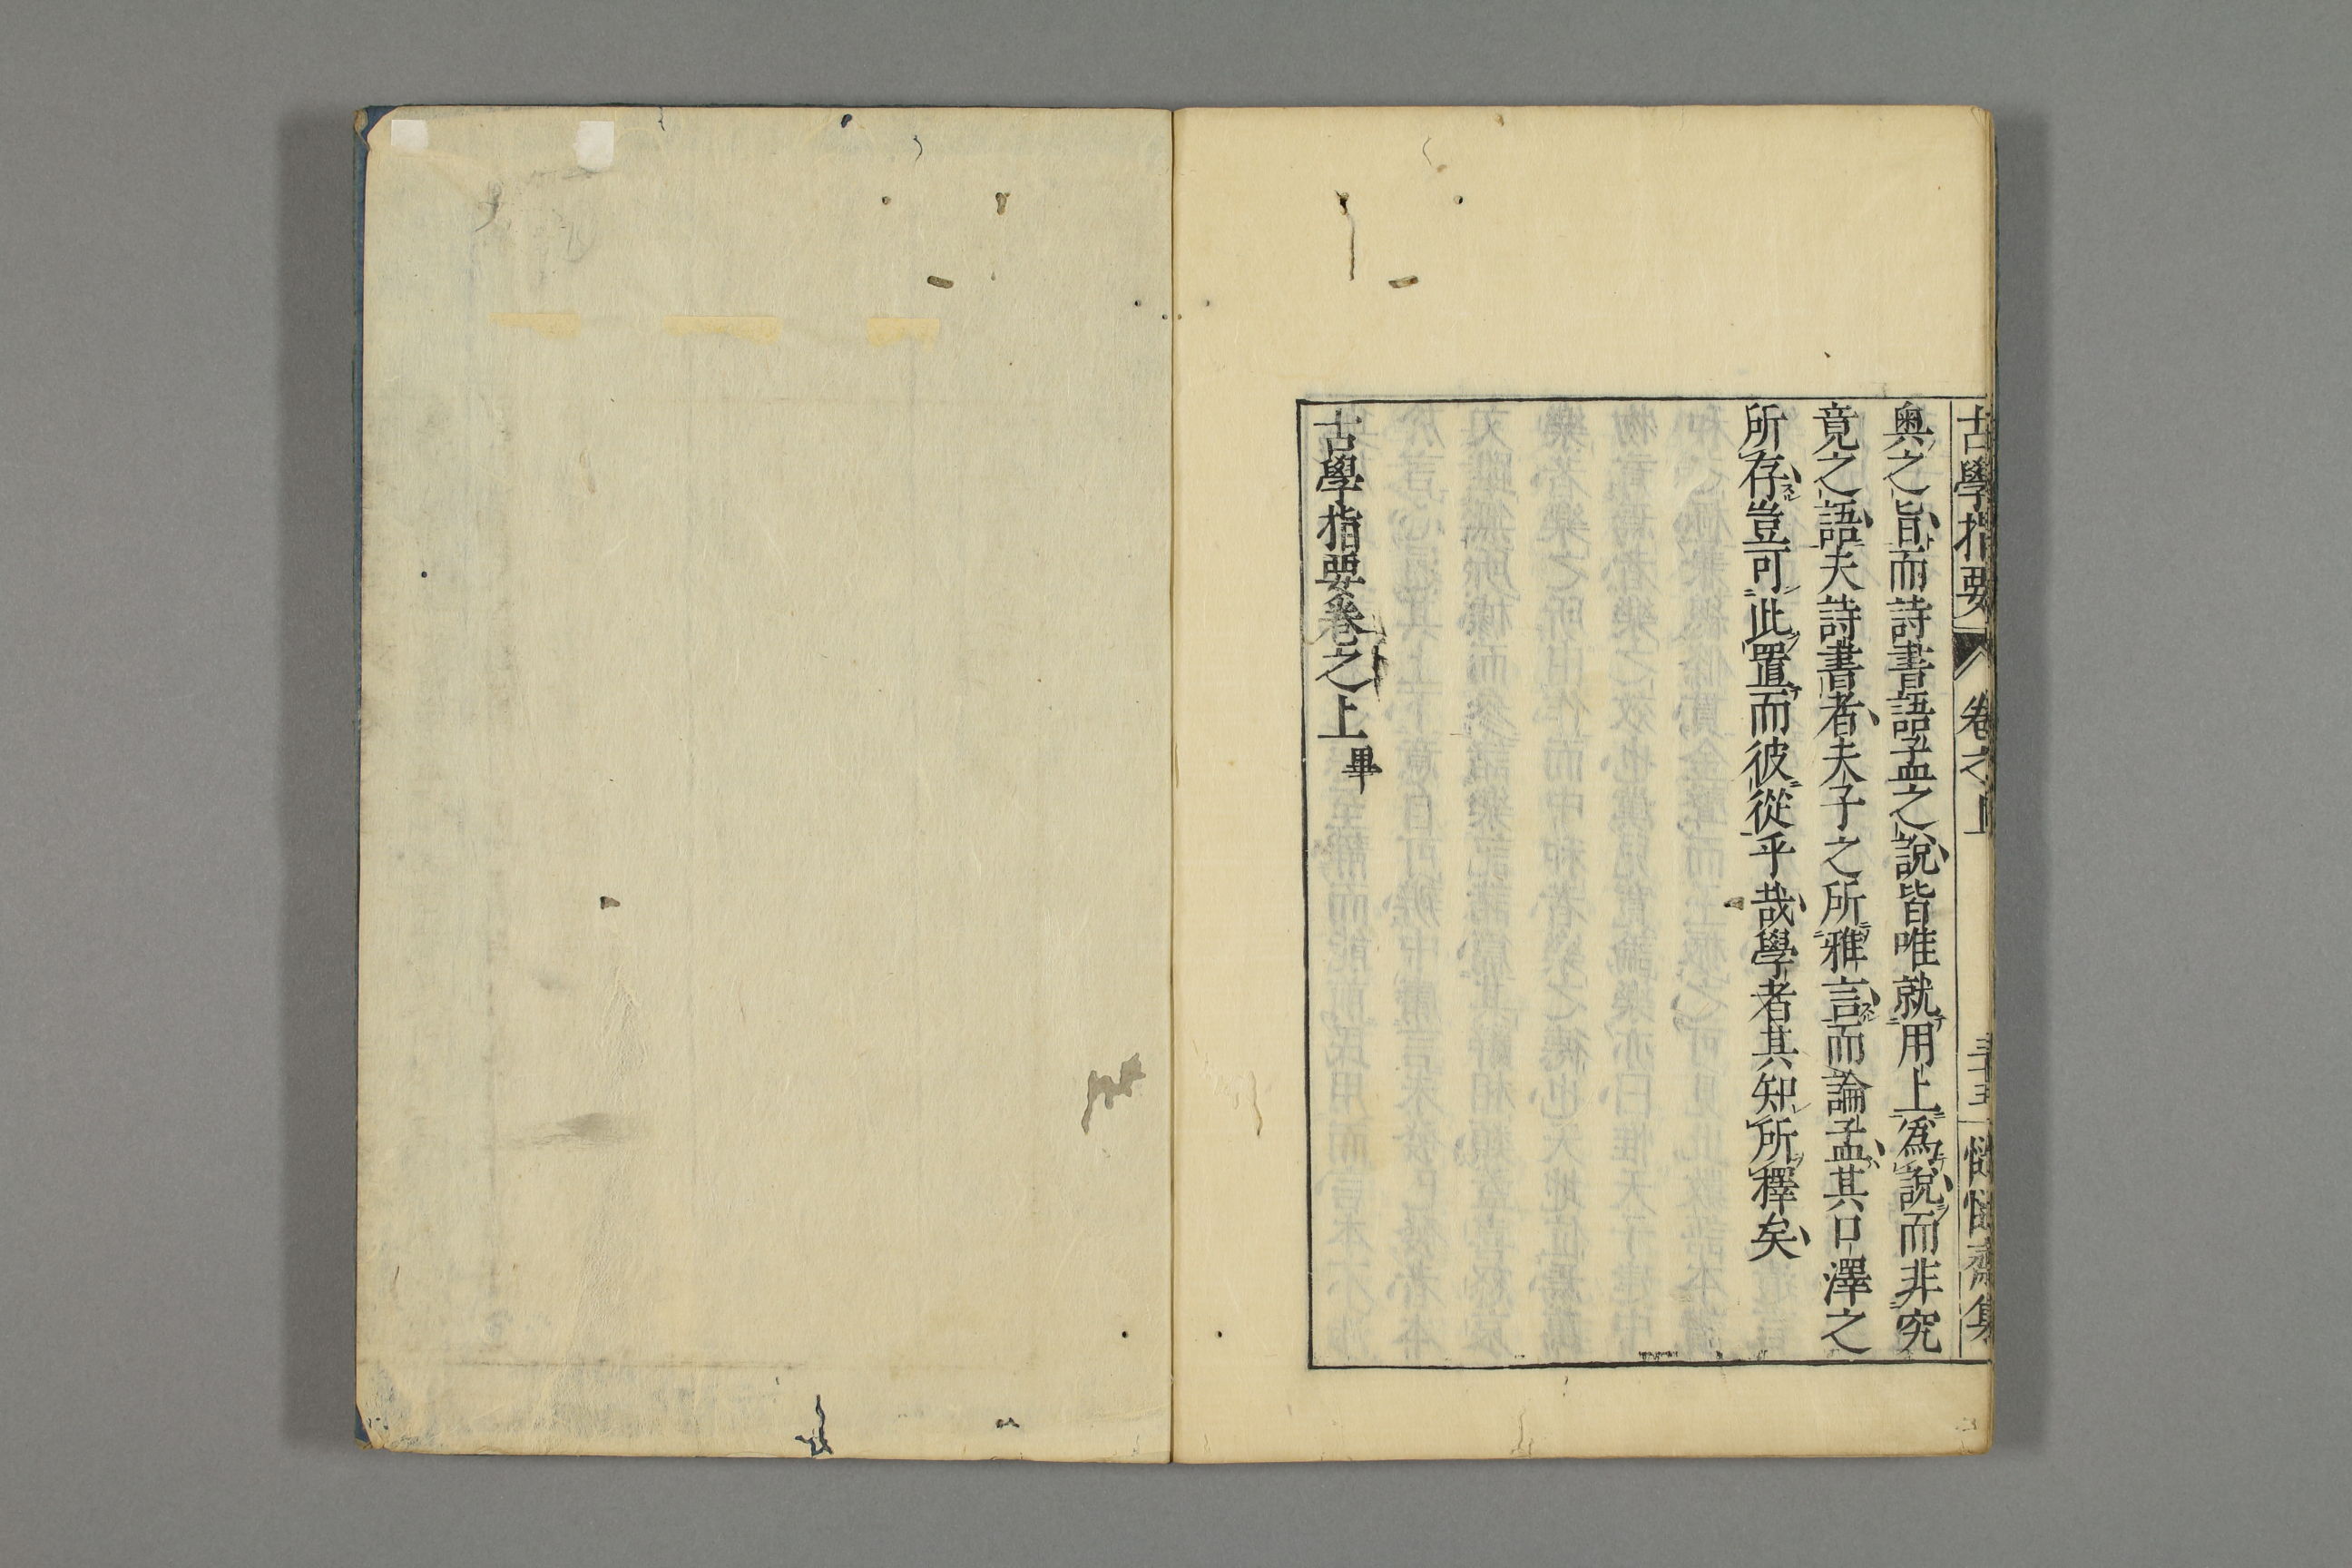 古學指要 卷之上 三十五 慥慥齋集
奥之旨而詩書語孟之說皆唯就用上爲說而非究
竟之語夫詩書者夫子之所雅言而論孟其口澤之
所存豈可此置而彼從乎哉學者其知所擇矣
古學指要卷之上畢